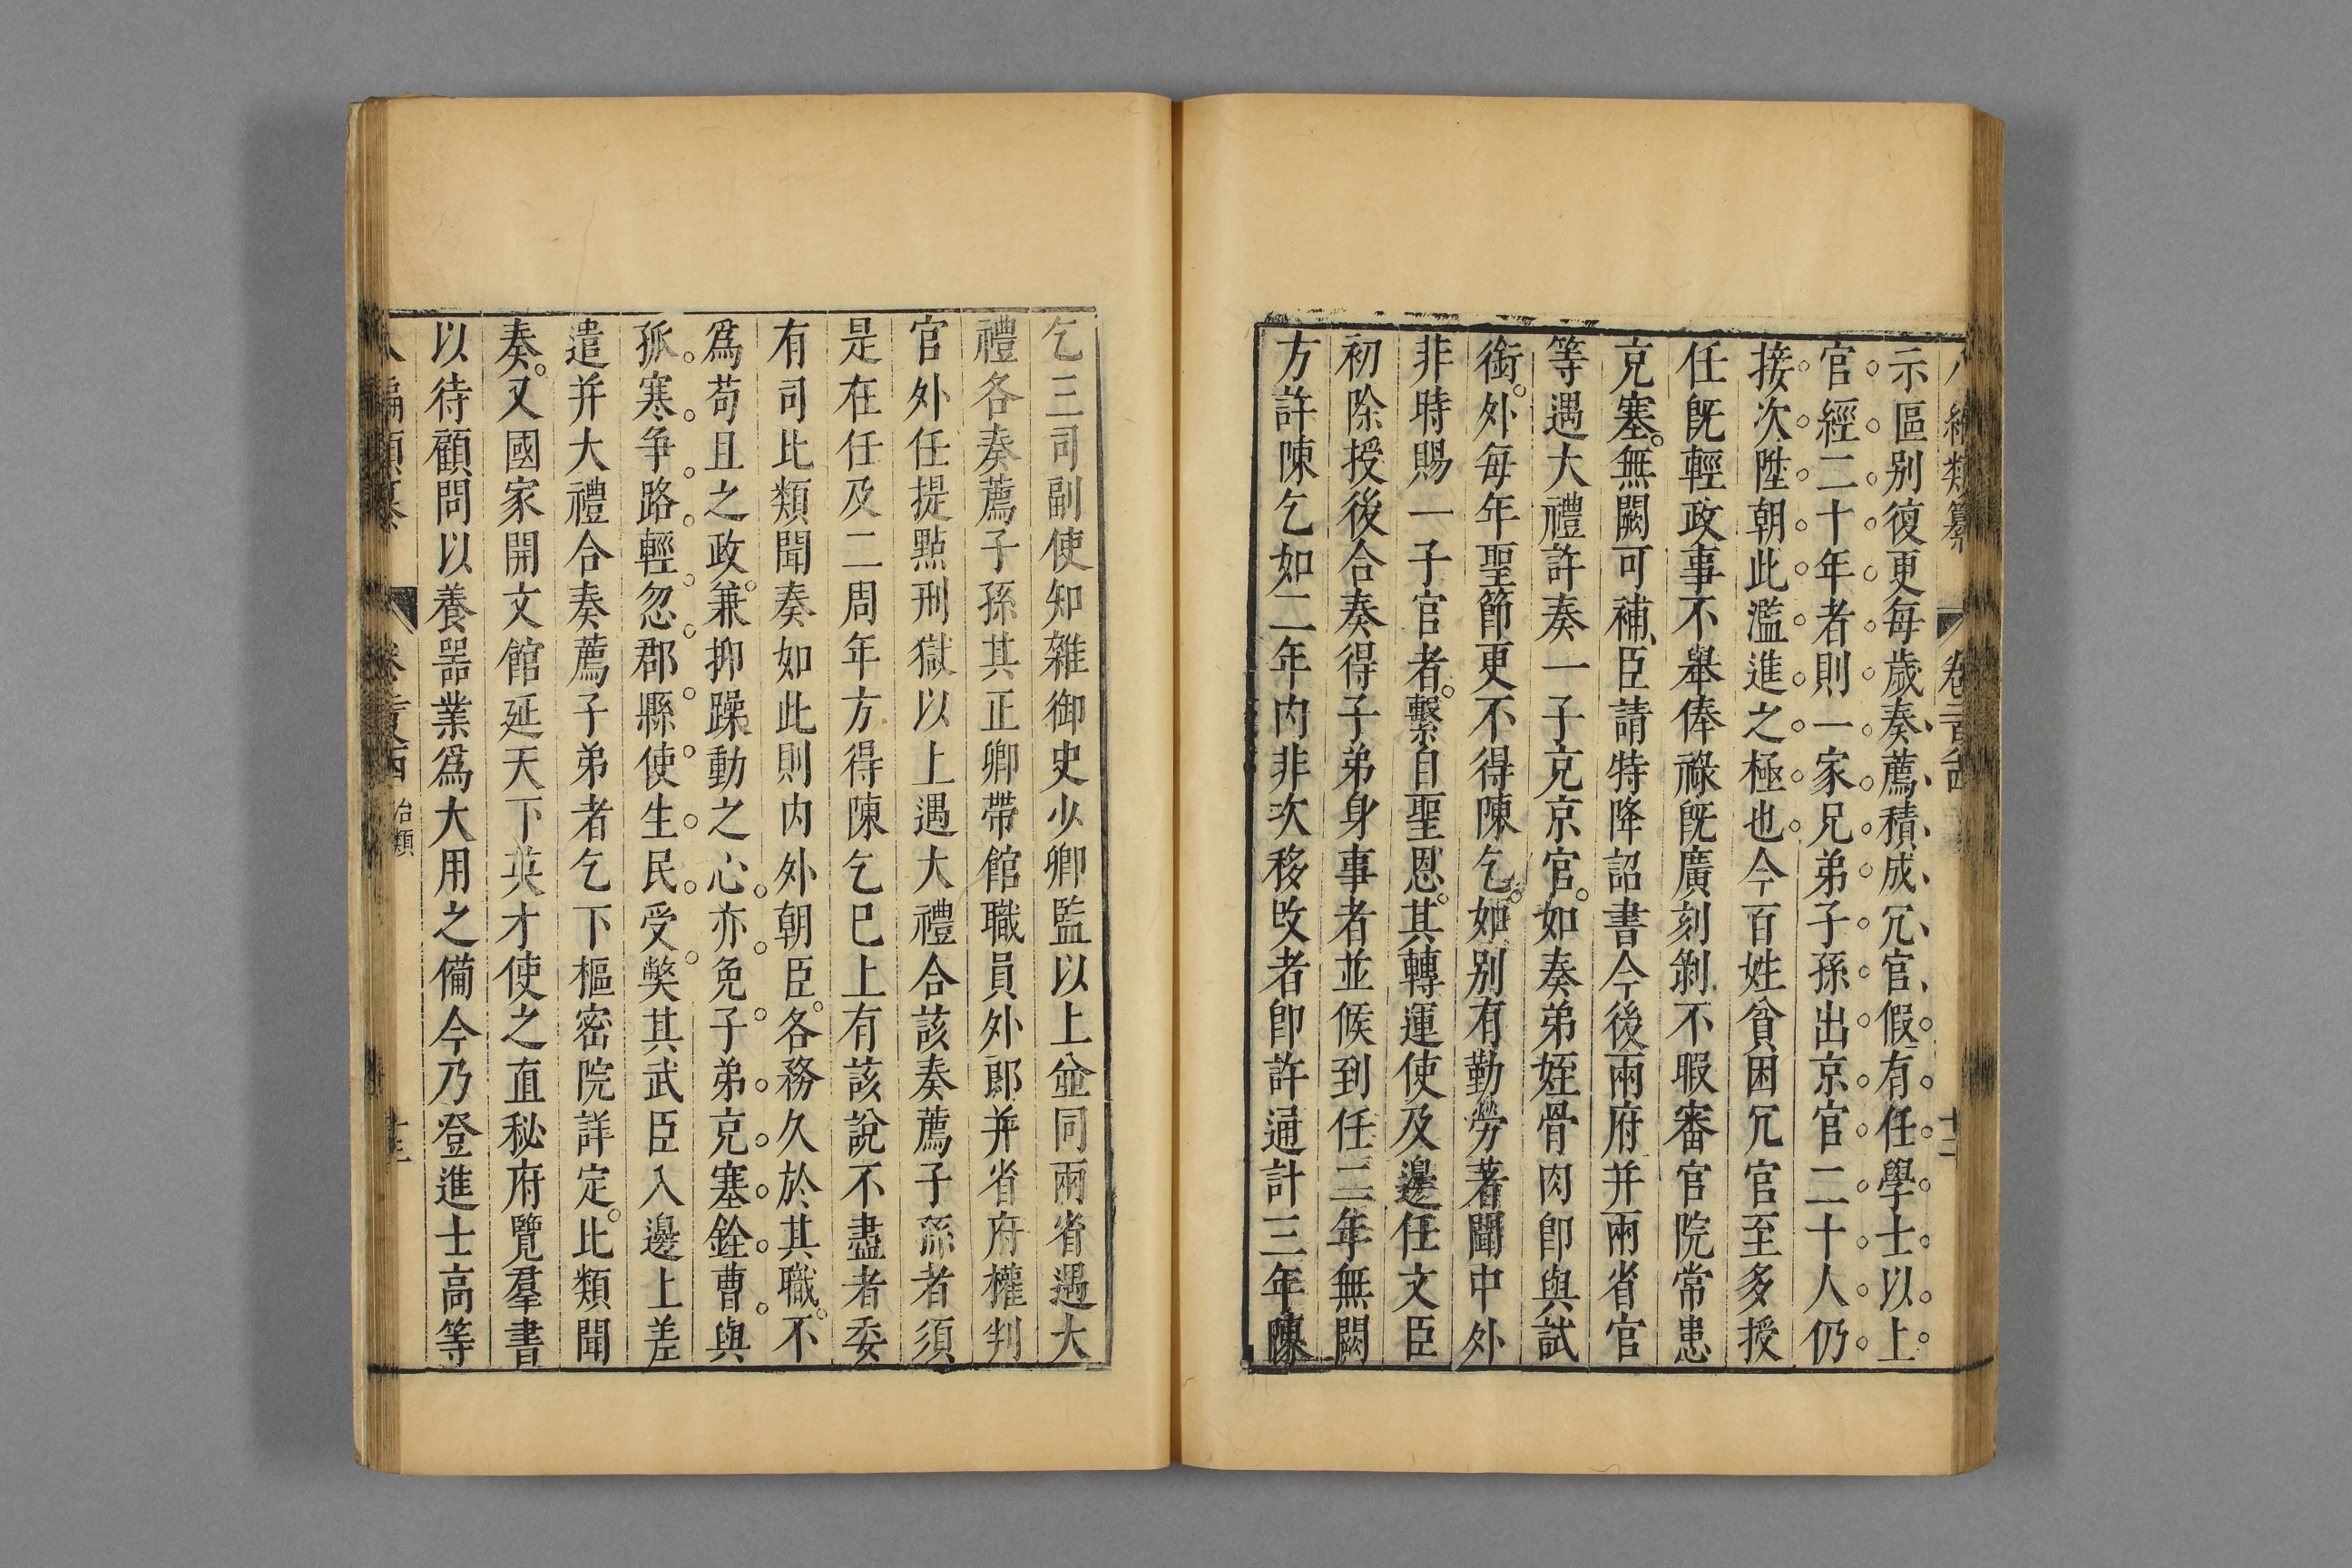 示區别復更每歲奏薦積成冗官假有任學士以上
官經二十年者則一家兄弟子孫出京官二十人仍
接次陞朝此濫進之極也今百姓貧困冗官至多授
任旣輕政事不舉俸祿旣廣刻剝不暇審官院常患
克塞無闕可補臣請特降詔書今後兩府并兩省官
等遇大禮許奏一子克京官如奏弟姪骨肉卽與試
銜外每年聖節更不得陳乞如别有勤勞著聞中外
非時賜一子官者繫自聖恩其轉運使及邊任文臣
初除授後合奏得子弟身事者並候到任二年無闕
方許陳乞如二年内非次移攺者卽許通計三年陳
乞三司副使知雜御史少卿監以上並同兩省遇大
禮各奏薦子孫其正卿帶館職員外郎并省府權判
官外任提點刑獄以上遇大禮合該奏薦子孫者須
是在任及二周年方得陳乞巳上有該說不盡者委
有司比類聞奏如此則内外朝臣各務久於其職不
爲苟且之政兼抑躁動之心亦免子弟克塞銓曹與
孤寒争路輕忽郡縣使生民受獘其武臣入邊上差
遣并大禮合奏薦子弟者乞下樞密院詳定比類聞
奏又國家開文館延天下英才使之直秘府覽羣書
以待顧問以養器業爲大用之備今乃登進士高等